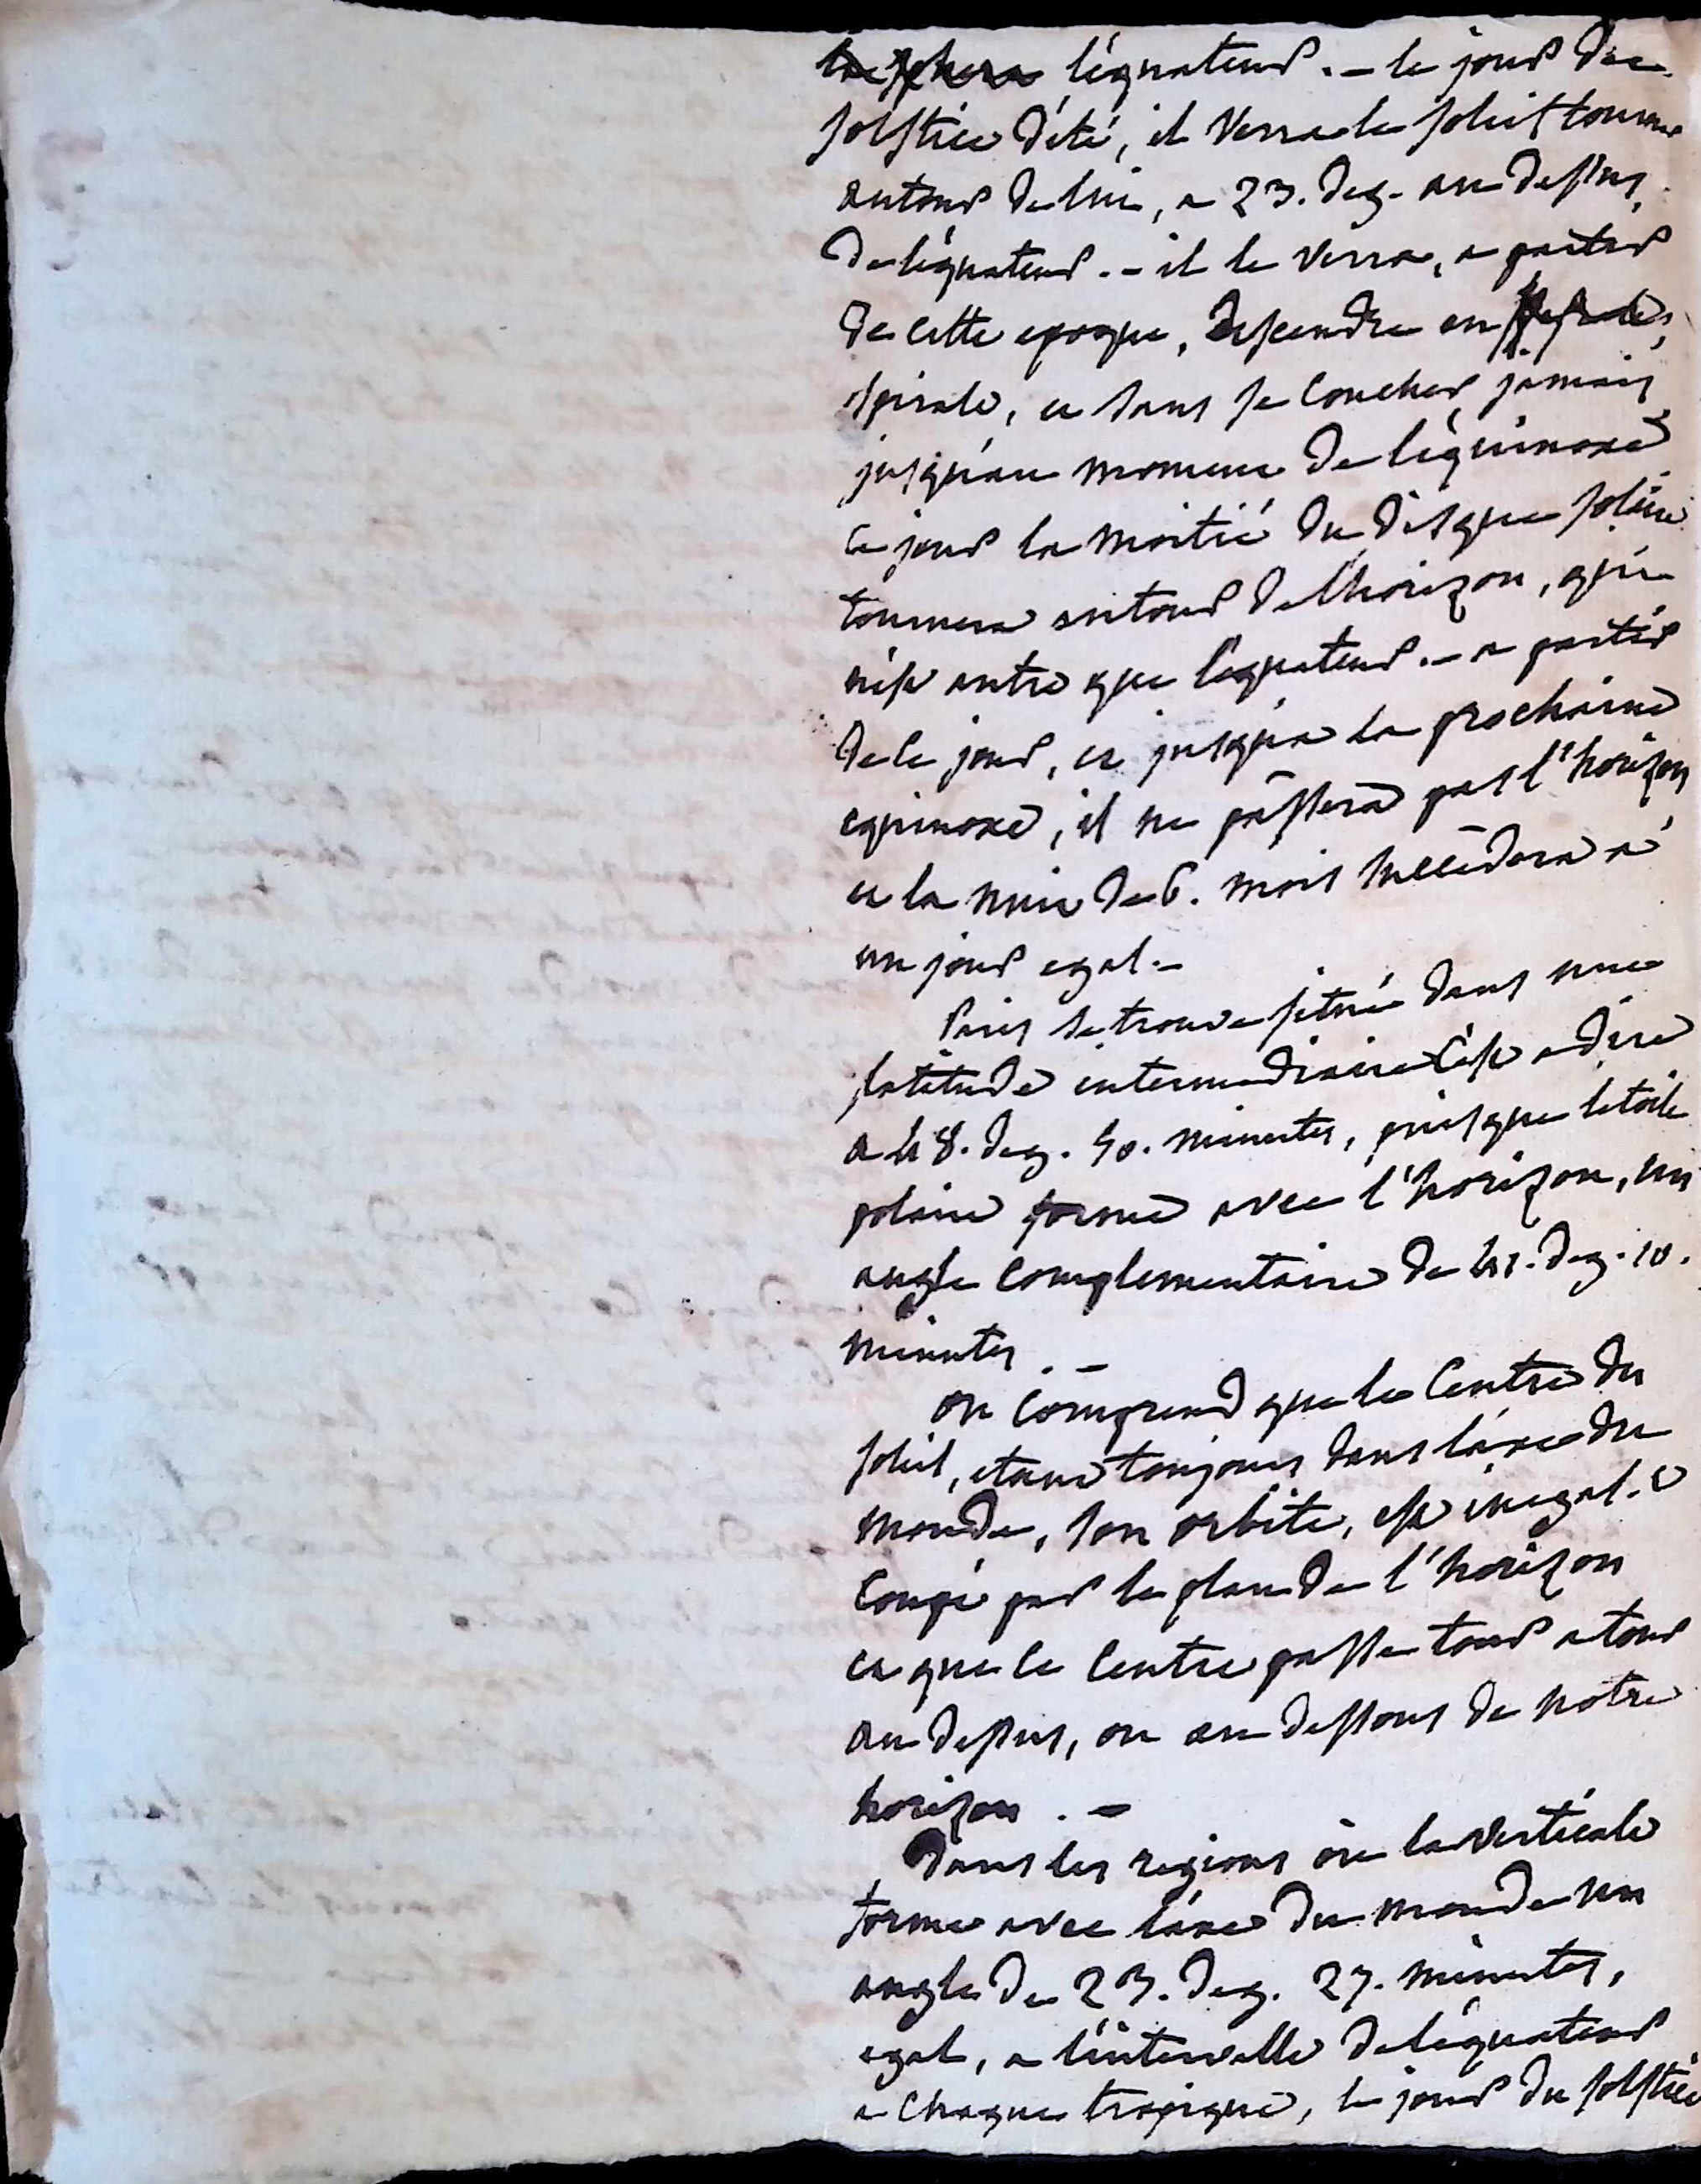 l'équateur. — le jour du
solstice d'été, il verra le soleil tourner
autour de lui, a 23. deg. au dessus
de léquateur. — il le verra, a partir
de cette epoque, descendre en
spirale, et sans se coucher jamais
jusqu'au moment de léquinoxe
ce jour la moitié du disque solaire
tournera autour de l'horizon, qui
n'est autre que léquateur. — a partir
de ce jour, et jusqu'a la prochaine
equinoxe, il ne passera pas l'horizon
et la nuit de 6. mois succédera a
un jour egal. —
Paris se trouve situé dans une
latitude intermediaire c'est a dire
a 48. deg. 50. minutes, puisque letoile
polaire forme avec l'horizon, un
angle complementaire de 41. deg. 10.
minutes. —
on comprend que le centre du
soleil, etant toujours dans láxe du
monde, son orbite, est inegal.t
coupé par le plan de l'horizon
et que le centre passe tour a tour
au dessus, ou au dessous de notre
horizon. —
Dans les regions où la verticale
forme avec láxe du monde un
angle de 23. deg. 27. minutes,
egal, a l'intervalle de léquateur
a chaque tropique, le jour du solstice